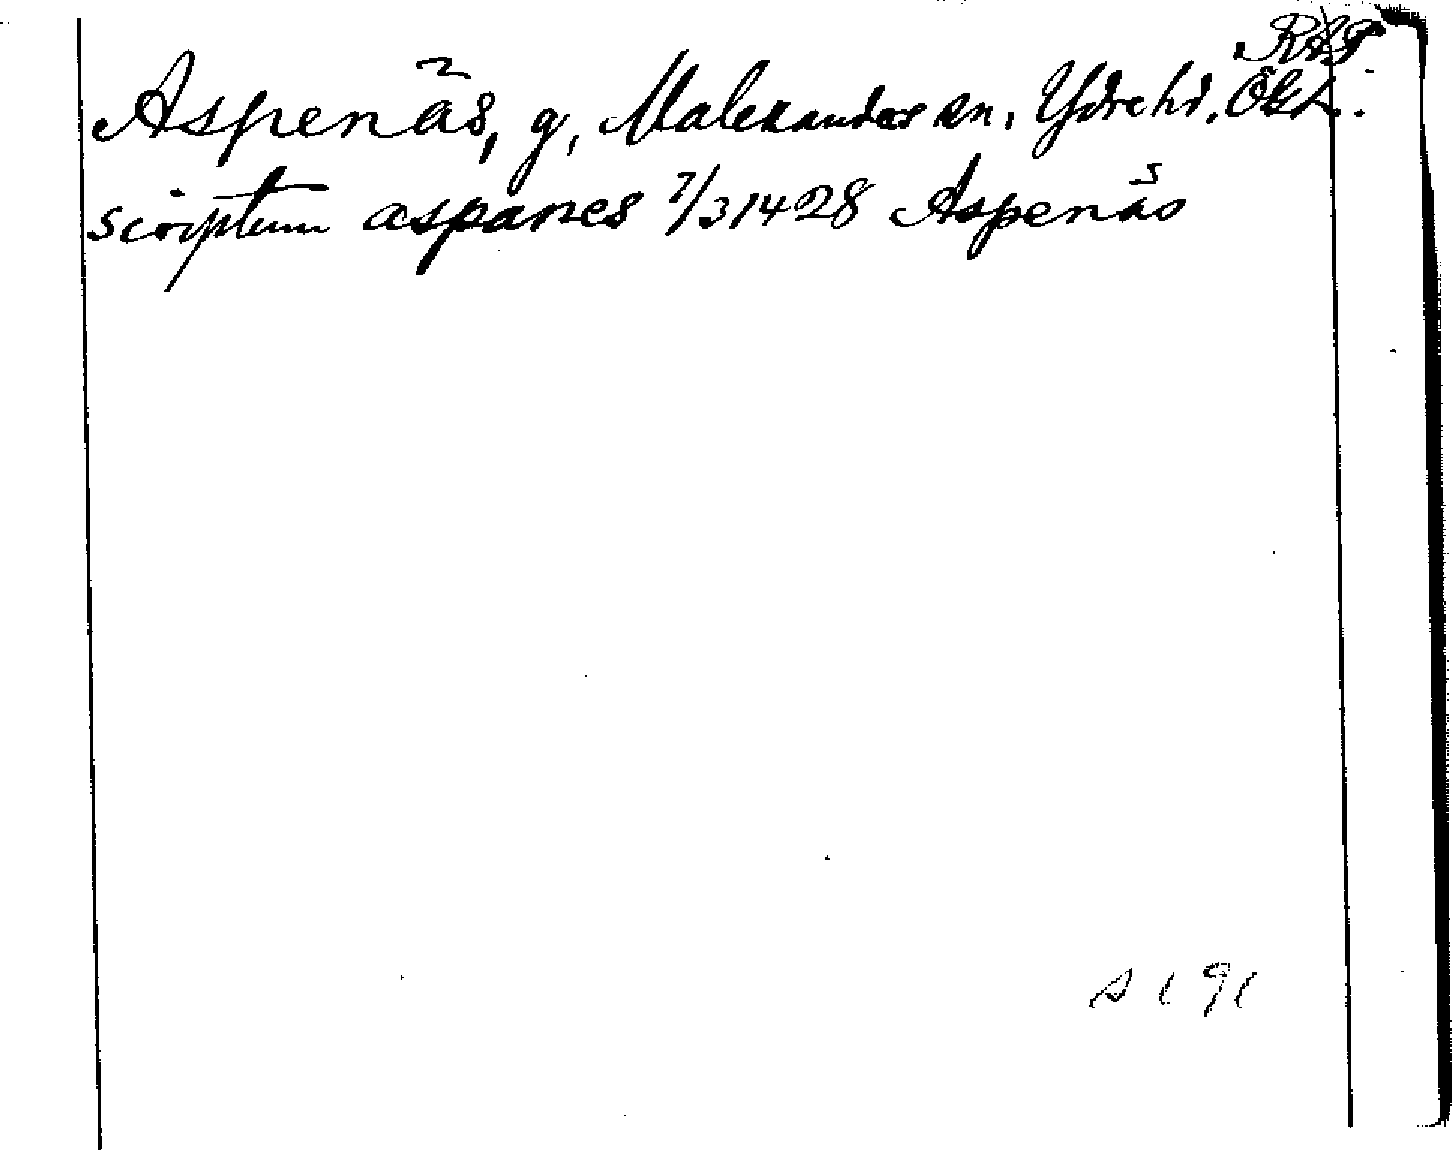 RAP
Aspenäs, g, Malexander sn, Ydre hd, Ögl.
scriptum aspanes 7/3 1428 Aspenäs